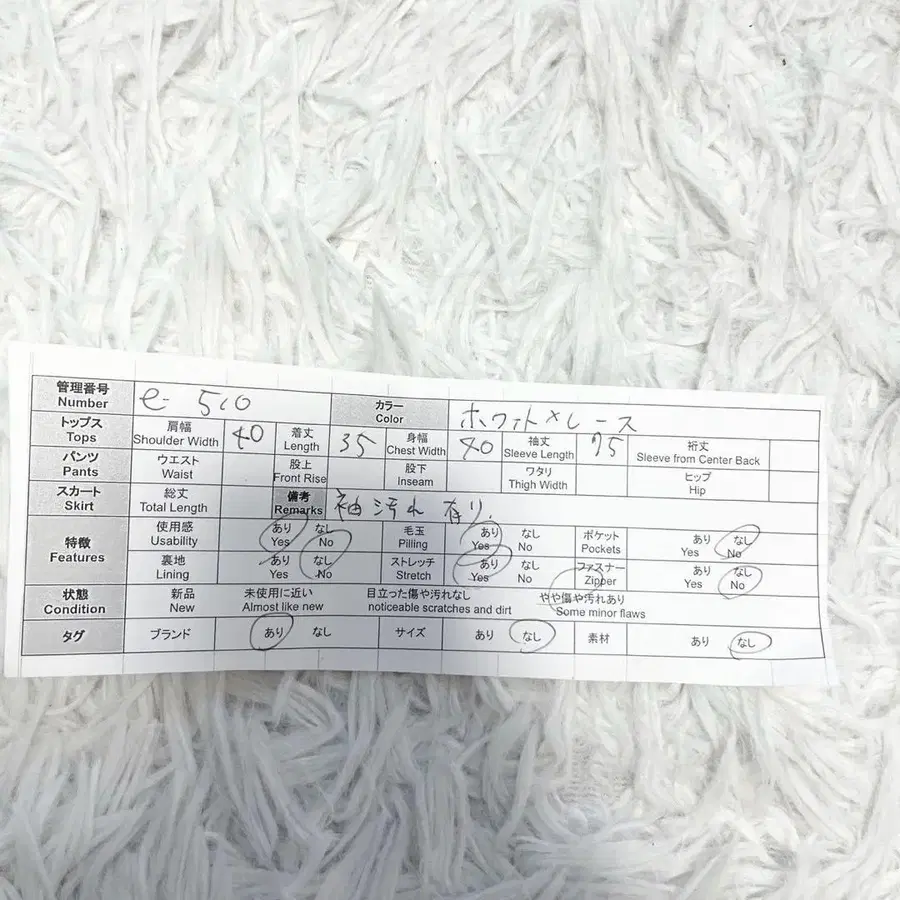 管理番号 Number e- 510 カラー Color ホワイト×レース
トップス Tops 肩幅 Shoulder Width 40 着丈 Length 35 身幅 Chest Width 40 袖丈 Sleeve Length 75 裄丈 Sleeve from Center Back
パンツ Pants ウエスト Waist 股上 Front Rise 股下 Inseam ワタリ Thigh Width ヒップ Hip
スカート Skirt 総丈 Total Length 備考 Remarks 袖汚れ有り.
特徴 Features 使用感 Usability あり Yes なし No 毛玉 Pilling あり Yes なし No ポケット Pockets あり Yes なし No
裏地 Lining あり Yes なし No ストレッチ Stretch あり Yes なし No ファスナー Zipper あり Yes なし No
状態 Condition 新品 New 未使用に近い Almost like new 目立った傷や汚れなし noticeable scratches and dirt やや傷や汚れあり Some minor flaws
タグ ブランド あり なし サイズ あり なし 素材 あり なし